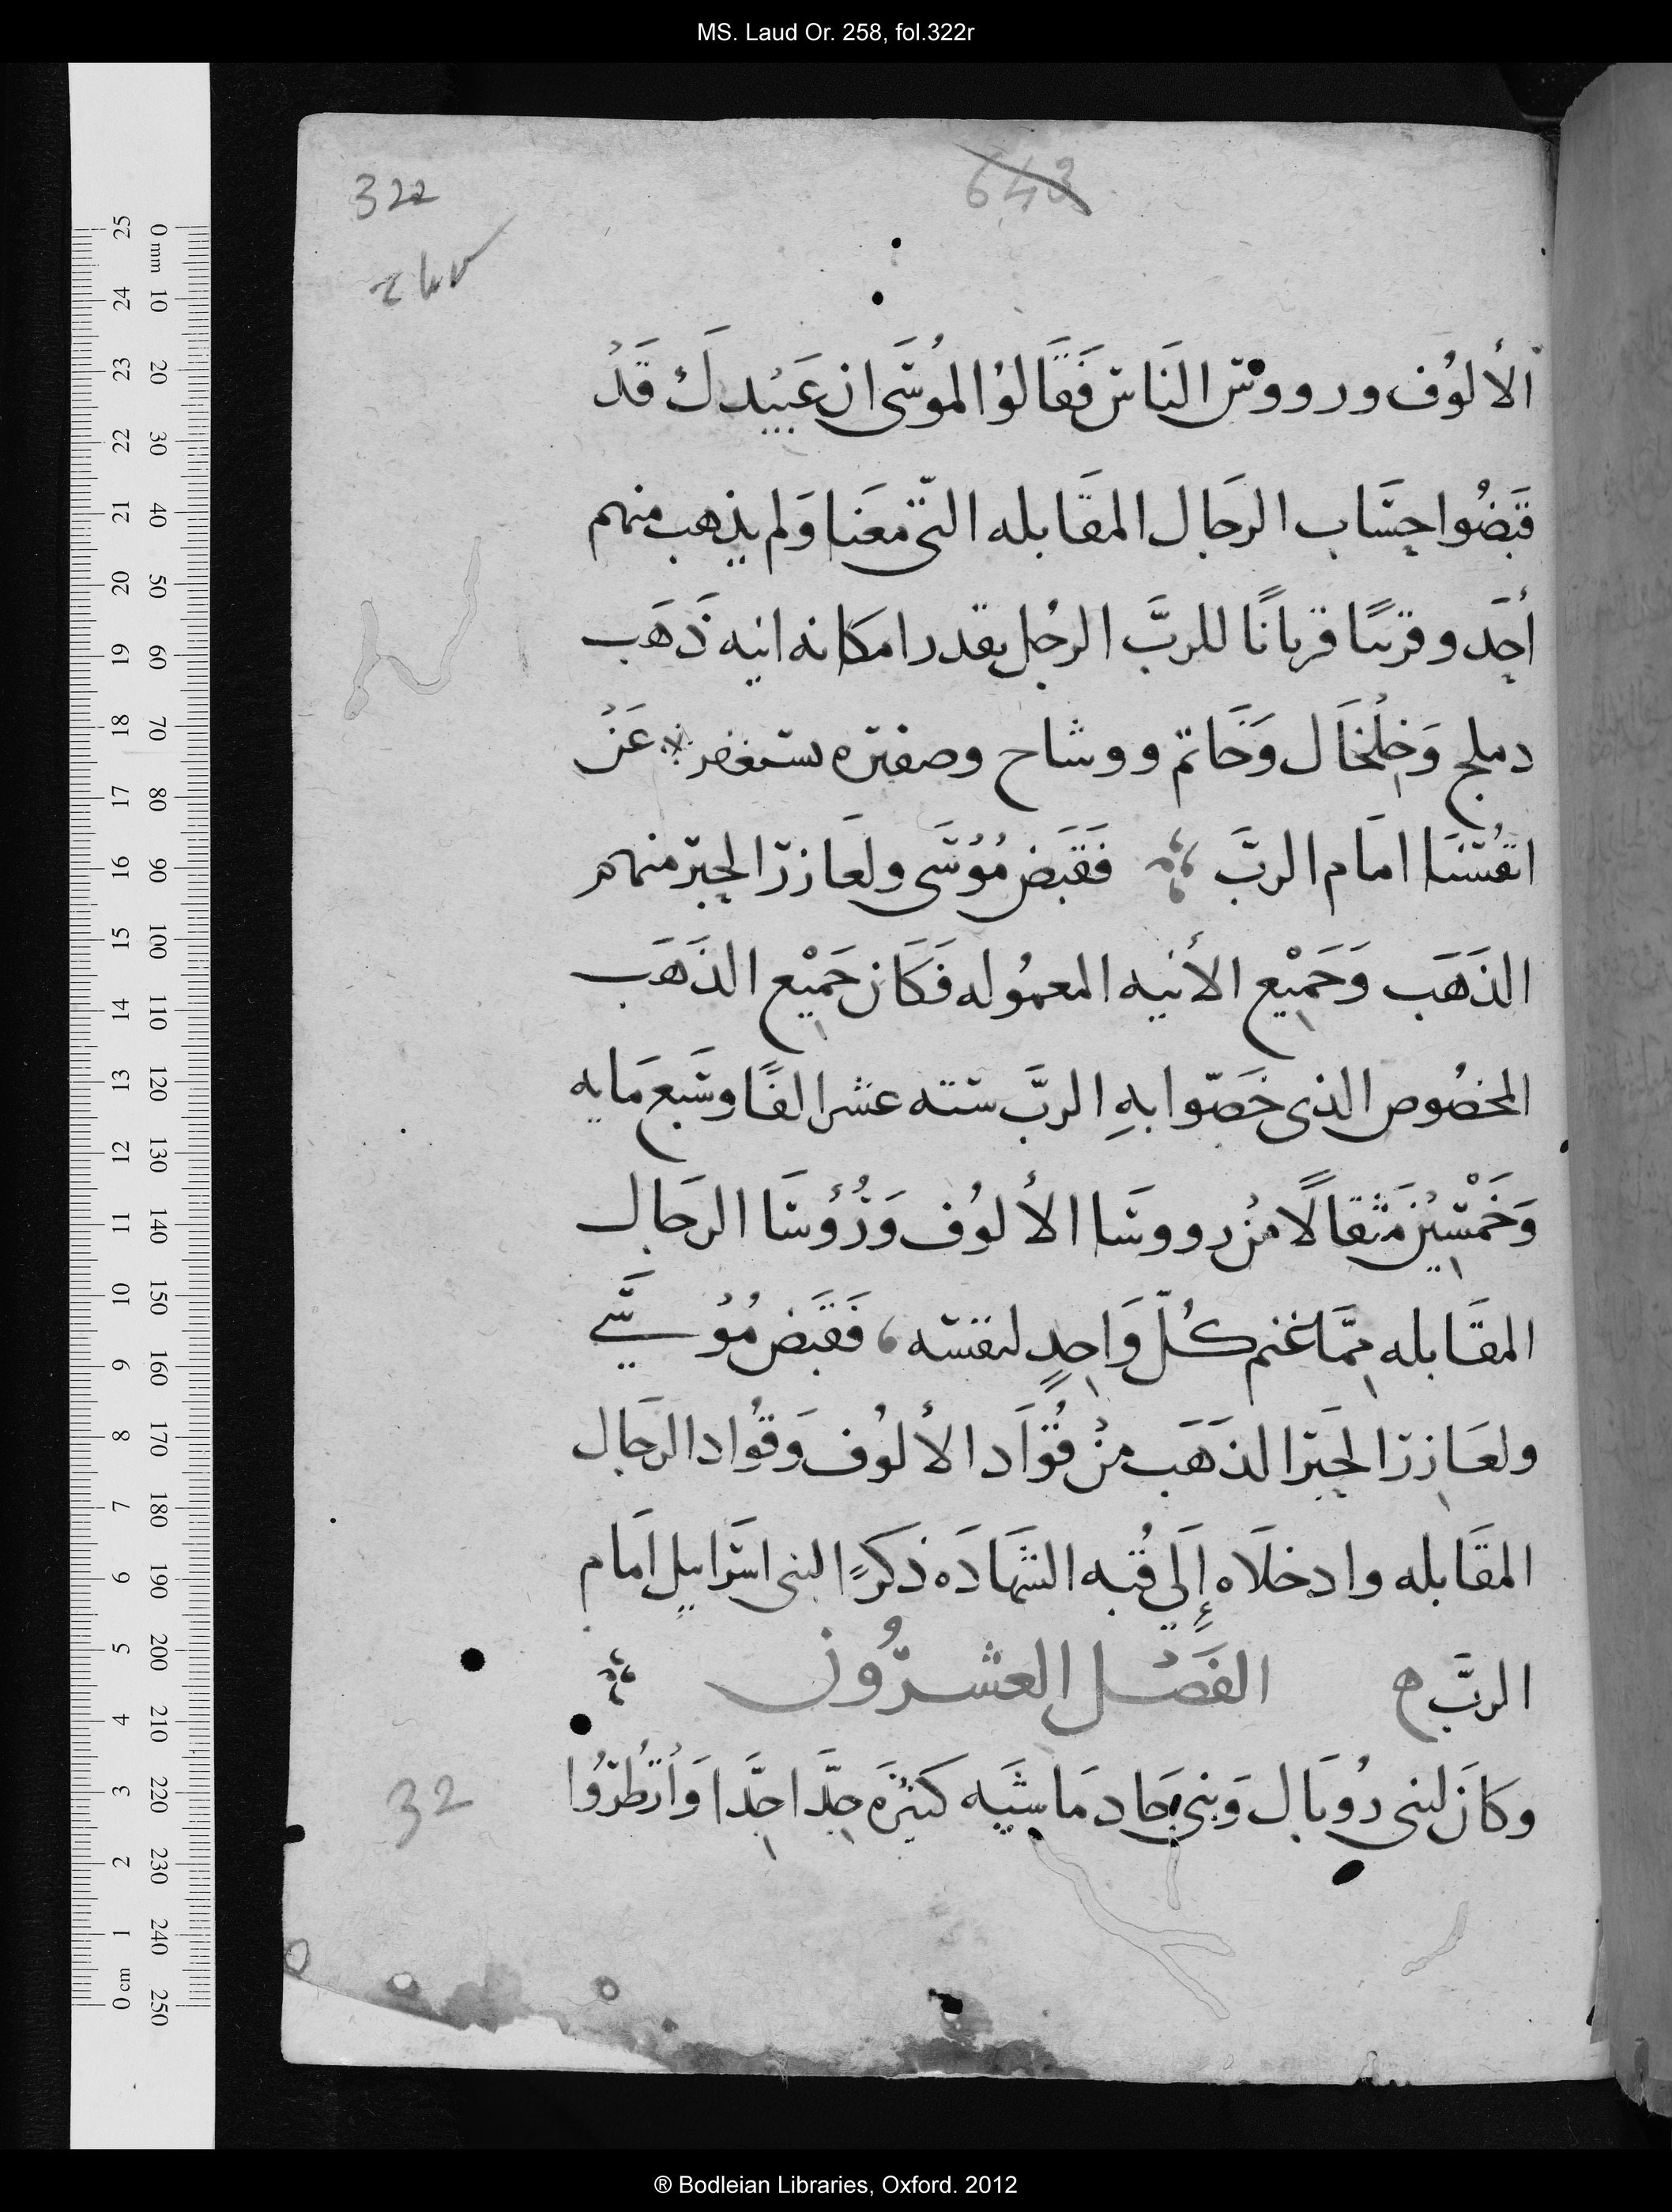 MS. Laud Or. 258, fol.322r
643
322
الألوُف ورووس النَاس فَقَالوُا لموُسَى ان عَبيْدكَ قَدْ
قبَضُوا حِسَاب الرجَال المقَابله التى معَنا وَلم يذهب منهم
أحَد وقربنًا قربانًا للربَّ الرجُل بقدر امكانه انيه ذَهَب
دملج وَخِلْخَال وَخَاتم ووشاح وضفيره نستغفر عَنْ
انفُسنَا امَام الربَّ فَقبَض مُوْسَى ولعَازر الحِبر منهم
الذَهَب وَجَمِيْع الأنيه المعموُله فَكَان جَمِيْع الذَهَب
المخصُوص الذى خَصّوا بهِ الربَّ سته عشر الفًا وسَبع مَايه
وَخَمْسِيْن مَثقالًا منْ رووسَا الألوُف وَرُؤُسَا الرجَال
المقَابله مِمَّا غنم كُلّ وَاحِدٍ لنفسه فَقَبَض مُوْسَى
ولعَازِر الحَبِر الذَهَب منْ قُوَّاد الألوُف وَقوُاد الرجَال
المقَابله وادخلَاه إِلَى قُبه الشهَادَه ذكرًا لبنى اسَرَاييل امَام
الربَّ الفَصْل العشرُون
وَكَانَ لبنى رُوبَال وَبنى جَاد مَاشيَه كَثيْرَه جِدَّا جِدَّا وَنْظُرْوُا
32
0 mm 10 20 30 40 50 60 70 80 90 100 110 120 130 140 150 160 170 180 190 200 210 220 230 240 250
25 24 23 22 21 20 19 18 17 16 15 14 13 12 11 10 9 8 7 6 5 4 3 2 1 0 cm
® Bodleian Libraries, Oxford. 2012